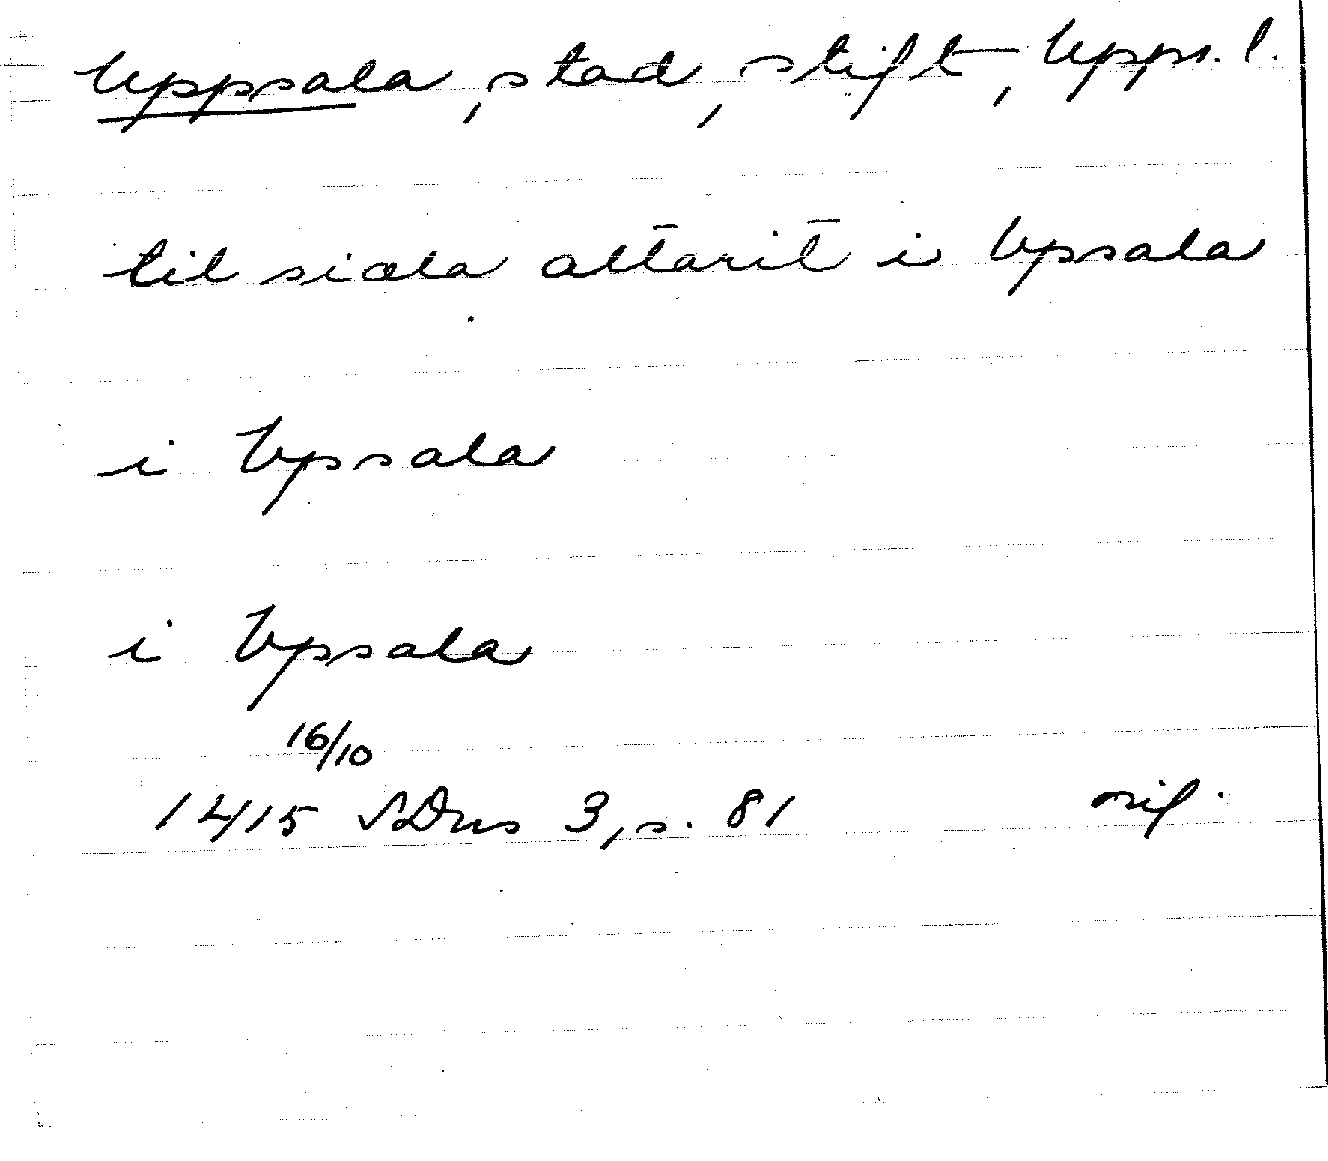 Uppsala, stad, stift, Upps. l.
til siæla altarit i Vpsala
i Vpsala
i Vpsala
16/10
1415 SDns 3, s. 81 orig.